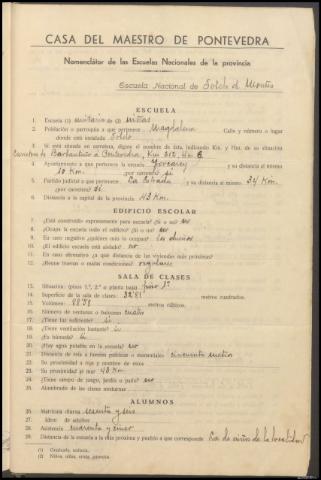 CASA DEL MAESTRO DE PONTEVEDRA
Nomenclátor de las Escuelas Nacionales de la provincia
Escuela Nacional de Soto de Montes
ESCUELA
1. Escuela (1) Unitaria de (2) niñas
2. Población o parroquia a que pertenece Magdalena Calle y número o lugar
donde está instalada
3. Si está situada en carretera, dígase el nombre de ésta, indicando Km. y Hm. de su situación
Carretera de a Pontevedra, Km
4. Ayuntamiento a que pertenece la escuela Forcarey y su distancia al mismo
10 Km. (por carretera) si
5. Partido judicial a que pertenece La Estrada y su distancia al mismo 34 Km.
(por carretera) si
6. Distancia a la capital de la provincia 43 Km.
EDIFICIO ESCOLAR
7. ¿Está construído expresamente para escuela? (Sí o no) no
8. ¿Ocupa la escuela todo el edificio? (Sí o no) no
9. En caso negativo ¿quiénes más lo ocupan? los dueños
10. ¿El edificio escuela está aislado? no
11. En caso afirmativo ¿a qué distancia de las viviendas más próximas?
12. ¿Reune buenas o malas condiciones? regulares
SALA DE CLASES
13. Situación: (pisos 1.º, 2.º o planta baja) piso 1º
14. Superficie de la sala de clases: metros cuadrados.
15. Volúmen: metros cúbicos.
16. Número de ventanas o balcones cuatro
17. ¿Tiene luz suficiente? si
18. ¿Tiene ventilación bastante?
19. ¿Es húmeda?
20. ¿Hay agua potable en la escuela? no
21. Distancia de ésta a fuentes públicas o manantiales cincuenta metros
22. Su proximidad a ríos y nombre de éstos
23. Su proximidad al mar 43 Km
24. ¿Tiene campo de juego, jardín o patio? no
25. Alumbrado de las clases nocturnas
ALUMNOS
26. Matrícula diurna sesenta y seis
27. Idem. de adultos
28. Asistencia cuarenta y cinco
29. Distancia de la escuela a la más próxima y pueblo a que corresponde La de niños de la localidad
(1) Graduada, unitaria.
(2) Niños, niñas, mixta, párvulos.